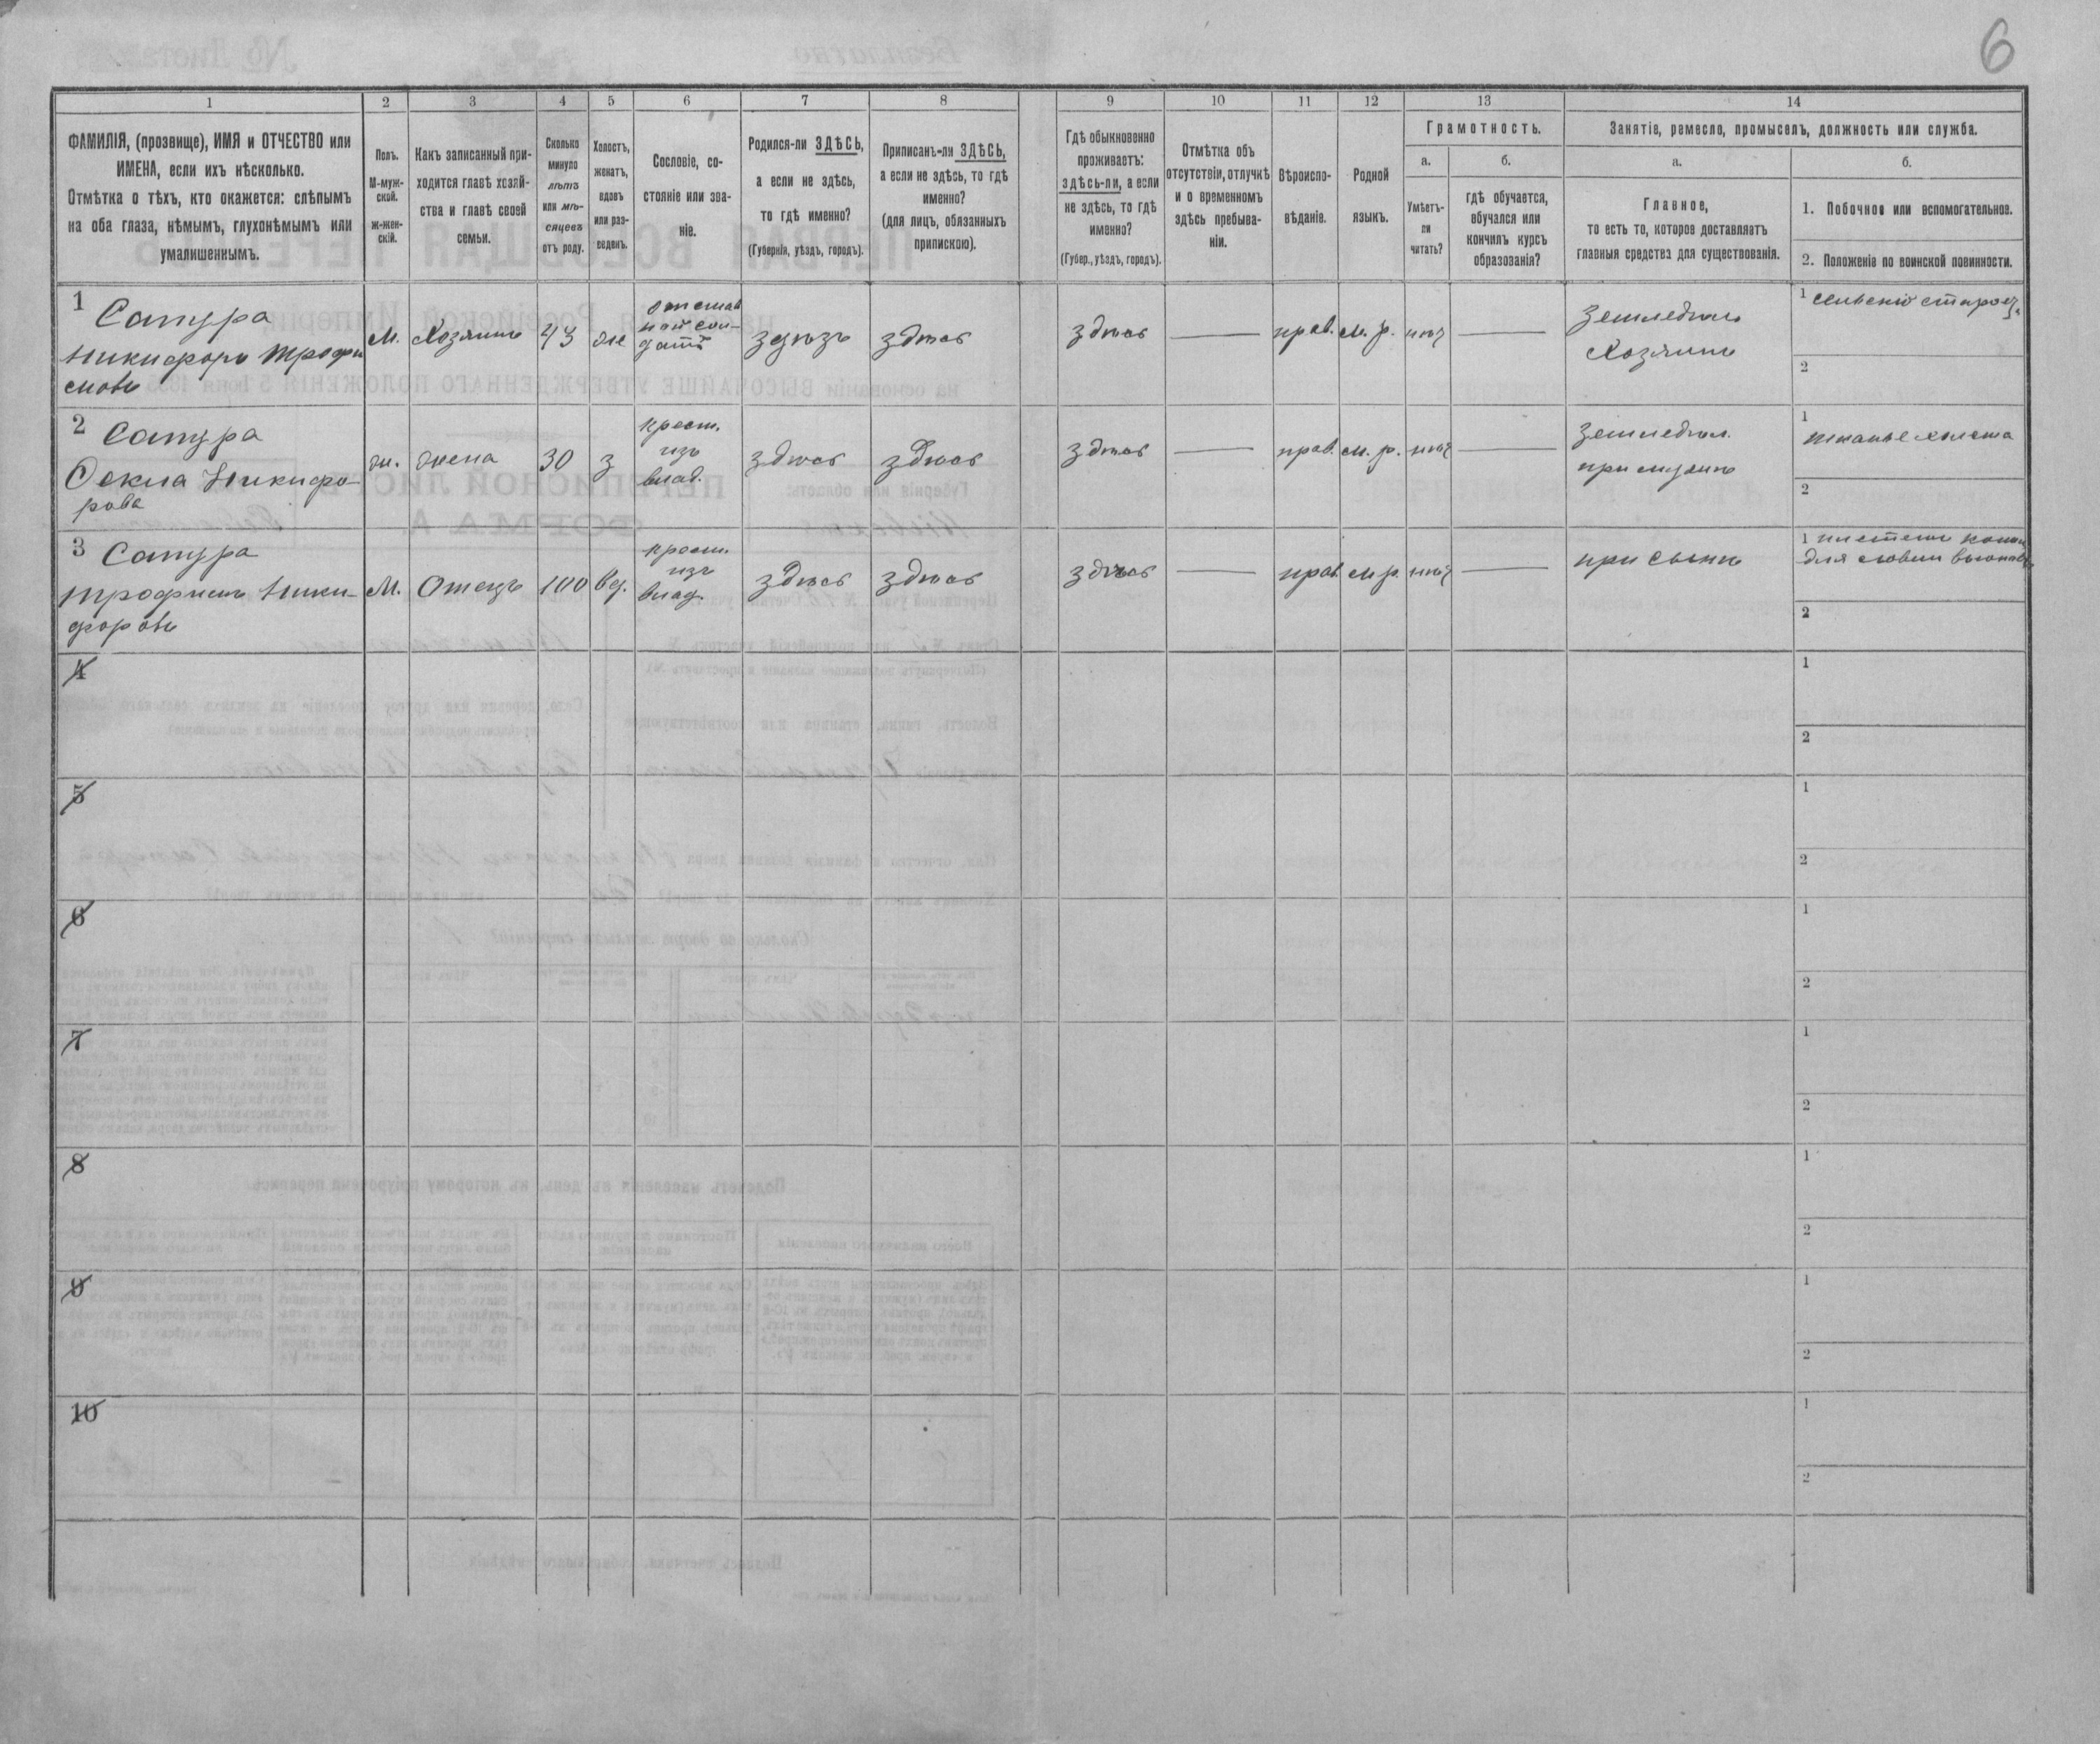 6
1
2
3
4
5
6
7
8
9
10
11
12
13
14
ФАМИЛІЯ, (прозвище), ИМЯ и ОТЧЕСТВО или
ИМЕНА, если ихъ нѣсколько.
Отмѣтка о тѣхъ, кто окажется: слѣпымъ
на оба глаза, нѣмымъ, глухонѣмымъ или
умалишеннымъ.
Полъ.
М-муж-
ской.
ж-жен-
скій.
Какъ записанный при-
ходится главѣ хозяй-
ства и главѣ своей
семьи.
Сколько
минуло
лѣтъ
или мѣ-
сяцевъ
отъ роду.
Холостъ,
женатъ,
вдовъ
или раз-
веденъ.
Сословіе, со-
стояніе или зва-
ніе.
Родился-ли ЗДѢСЬ,
а если не здѣсь,
то гдѣ именно?
(Губернія, уѣздъ, городъ).
Приписанъ-ли ЗДѢСЬ,
а если не здѣсь, то гдѣ
именно?
(для лицъ, обязанныхъ
припискою).
Гдѣ обыкновенно
проживаетъ:
здѣсь-ли, а если
не здѣсь, то гдѣ
именно?
(Губер., уѣздъ, городъ).
Отмѣтка объ
отсутствіи, отлучкѣ
и о временномъ
здѣсь пребыва-
ніи.
Вѣроиспо-
вѣданіе.
Родной
языкъ.
Грамотность.
а.
Умѣетъ-
ли
читать?
б.
гдѣ обучается,
обучался или
кончилъ курсъ
образованія?
Занятіе, ремесло, промыселъ, должность или служба.
а.
Главное,
то есть то, которое доставляетъ
главныя средства для существованія.
б.
1. Побочное или вспомогательное.
2. Положеніе по воинской повинности.
1 Сапура
Никифоръ Трофи
мовъ
М.
Хозяинъ
43
же
отстав
ной сол-
датъ
здѣсь
здѣсь
здѣсь
прав.
м. р.
нѣт
Земледѣл
Хозяинъ
1 сельскій старос
2
2 Сапура
Фекла Никифо-
рова
ж.
жена
30
з
крест.
изъ
влад.
здѣсь
здѣсь
здѣсь
прав.
м. р.
нѣт
Земледѣл.
при мужѣ
1
тканье холста
2
3 Сапура
Трофимъ Ники-
форовъ
М.
Отецъ
100
вд.
крест.
изъ
влад.
здѣсь
здѣсь
здѣсь
прав
м. р.
нѣт
при сынѣ
1
для ловли вьюнов
2
4
1
2
5
1
2
6
1
2
7
1
2
8
1
2
9
1
2
10
1
2